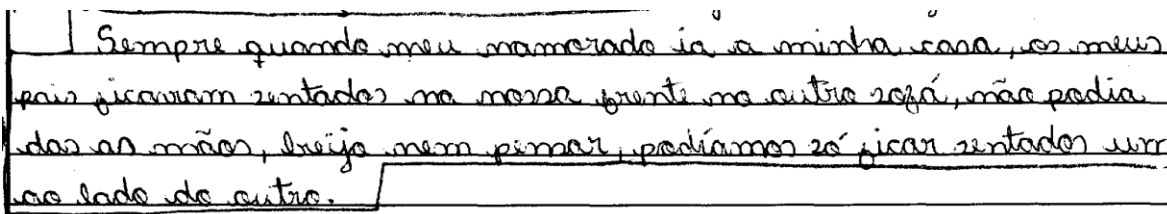 Sempre quando meu namorado ia a minha casa, os meus
pais ficavam sentados na nossa frente no outro sofá, não podia
das as mãos, beijo nem pensar, podíamos só ficar sentados um
ao lado do outro.